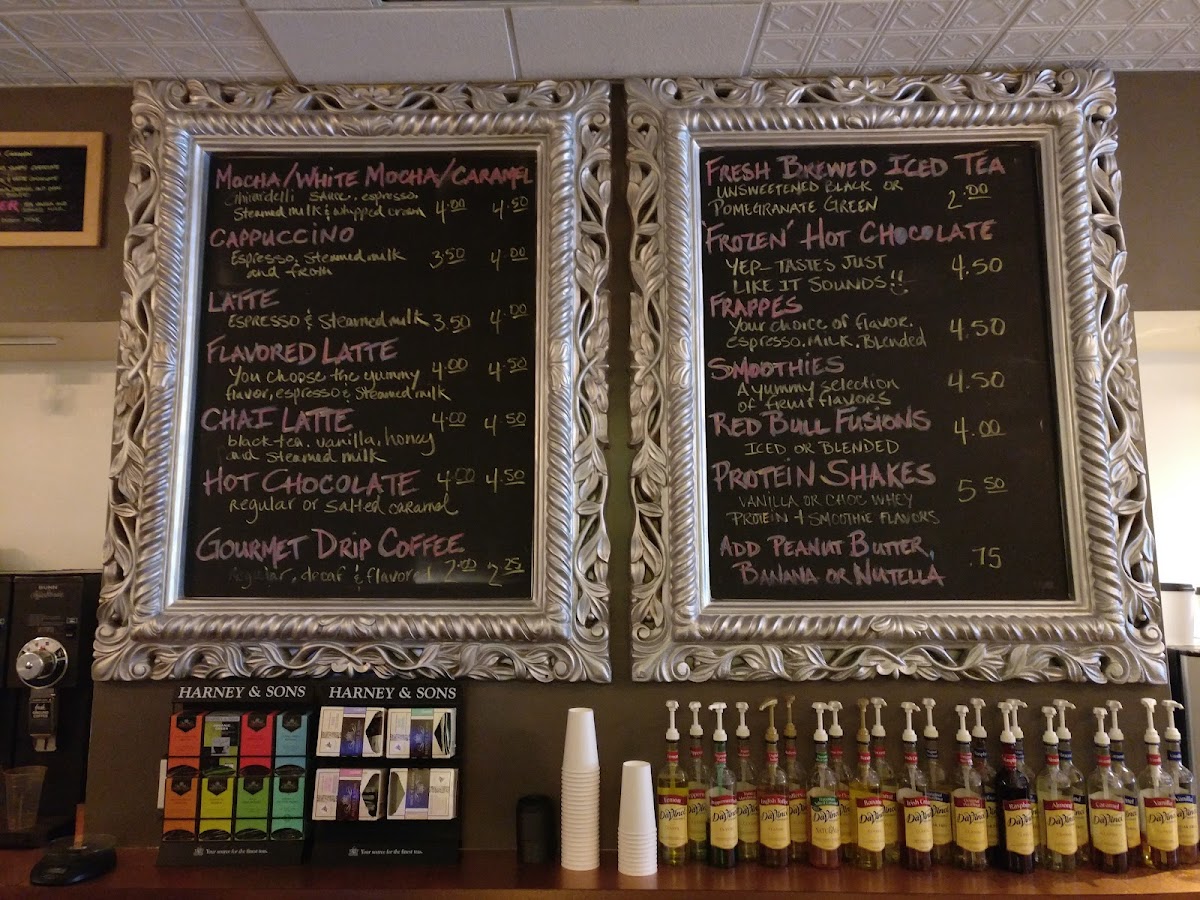 MOCHA/WHITE MOCHA/CARAMEL
Ghirardelli sauce, espresso,
Steamed milk & whipped cream 4.00 4.50
CAPPUCCINO
Espresso, Steamed milk 3.50 4.00
and from
LATTE
ESPRESSO & Steamed milk 3.50 4.00
FLAVORED LATTE
You choose the yummy 4.00 4.50
flavor, espresso & Steamed milk
CHAI LATTE 4.00 4.50
black tea, vanilla, honey
and Steamed milk
HOT CHOCOLATE 4.00 4.50
regular or salted caramel
GOURMET DRIP COFFEE
Regular, decaf & flavored 2.00 2.25
FRESH BREWED ICED TEA
UNSWEETENED BLACK OR
POMEGRANATE GREEN 2.00
'FROZEN' HOT CHOCOLATE
YEP- TASTES JUST 4.50
LIKE IT SOUNDS!!
FRAPPES
Your choice of flavor, 4.50
espresso, MILK, Blended
SMOOTHIES
A yummy selection 4.50
of fruit flavors
RED BULL FUSIONS 4.00
ICED OR BLENDED
PROTEIN SHAKES
VANILLA OR CHOC WHEY 5.50
PROTEIN + SMOOTHIE FLAVORS
ADD PEANUT BUTTER, .75
BANANA OR NUTELLA
HARNEY & SONS
HARNEY & SONS
Your source for the finest teas.
Your source for the finest teas.
BUNN
DaVinci
DaVinci
DaVinci
DaVinci
DaVinci
DaVinci
Raspberry
DaVinci
Almond
DaVinci
Caramel
DaVinci
Vanilla
DaVinci